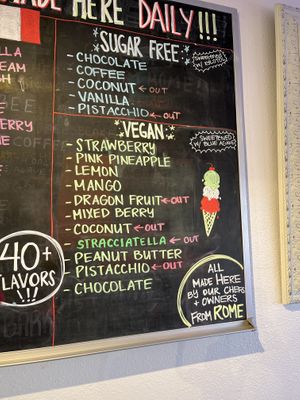 MADE HERE DAILY!!!
SUGAR FREE:
- CHOCOLATE
- COFFEE
- COCONUT ← OUT
- VANILLA
- PISTACCHIO ← OUT
VEGAN:
SWEETENED W/ BLUE AGAVE
- STRAWBERRY
- PINK PINEAPPLE
- LEMON
- MANGO
- DRAGON FRUIT ← OUT
- MIXED BERRY
- COCONUT ← OUT
- STRACCIATELLA ← OUT
- PEANUT BUTTER
- PISTACCHIO ← OUT
- CHOCOLATE
40+
FLAVORS
!!!
ALL
MADE HERE
BY OUR CHEFS
+ OWNERS
FROM ROME